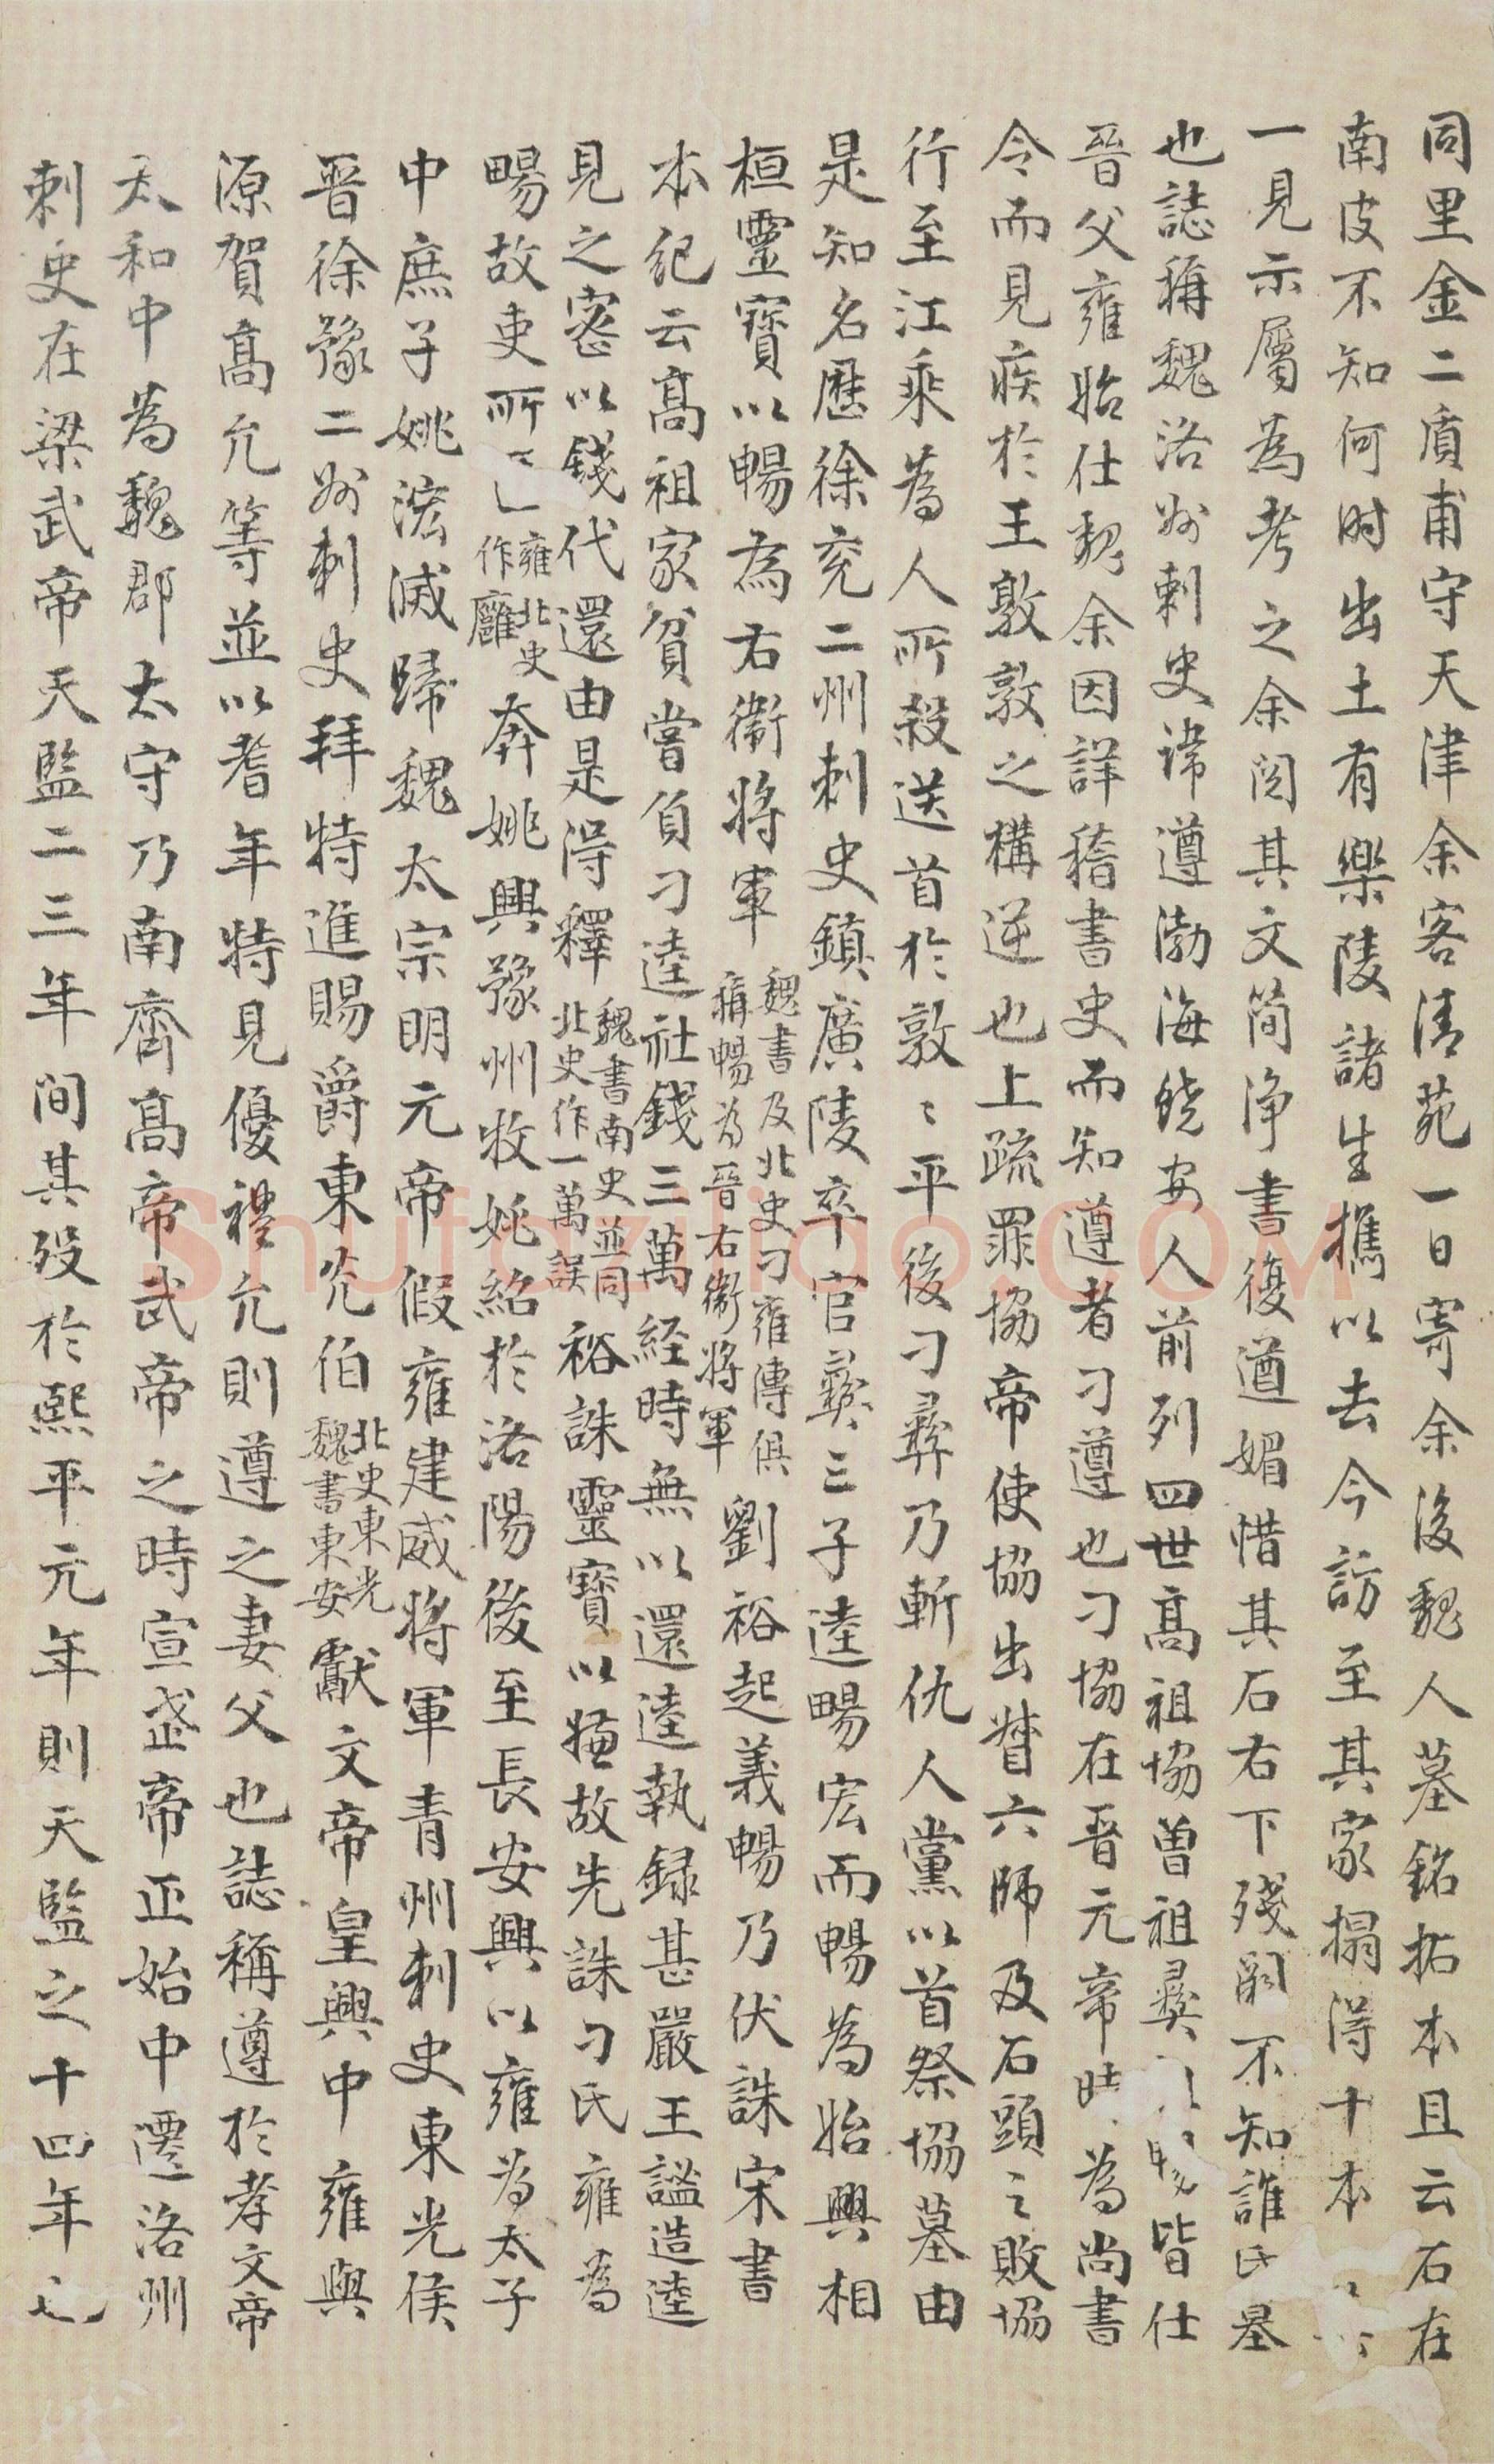 同里金二質甫守天津余客清苑一日寄余後魏人墓銘拓本且云石在
南皮不知何時出土有樂陵諸生携以去今訪至其家搨得十本
一見示屬為考之余閱其文簡淨書復遒媚惜其石右下殘闕不知誰氏墓
也誌稱魏洛州刺史諱遵渤海饒安人前列四世高祖協曾祖彝暢皆仕
晉父雍始仕魏余因詳稽書史而知遵者刁遵也刁協在晉元帝時為尚書
令而見疾於王敦敦之構逆也上疏罪協帝使協出督六師及石頭之敗協
行至江乘為人所殺送首於敦〻平後刁彝乃斬仇人黨以首祭協墓由
是知名歷徐兖二州刺史鎮廣陵卒官彝三子逵暢宏而暢為始興相
桓靈寶以暢為右衛將軍魏書及北史刁雍傳俱稱暢為晉右衛將軍劉裕起義暢乃伏誅宋書
本紀云高祖家貧嘗負刁逵社錢三萬經時無以還逵執録甚嚴王謐造逵
見之密以錢代還由是得釋魏書南史並同北史作一萬誤裕誅靈寶以嫌故先誅刁氏雍為
暢故吏所匿雍北史作廱奔姚興豫州牧姚紹於洛陽後至長安興以雍為太子
中庶子姚泓滅歸魏太宗明元帝假雍建威將軍青州刺史東光侯
晉徐豫二州刺史拜特進賜爵東兖伯北史東光魏書東安獻文帝皇興中雍與
源賀高允等並以耆年特見優禮允則遵之妻父也誌稱遵於孝文帝
太和中為魏郡太守乃南齊高帝武帝之時宣武帝正始中遷洛州
刺史在梁武帝天監二三年間其歿於熙平元年則天監之十四年七